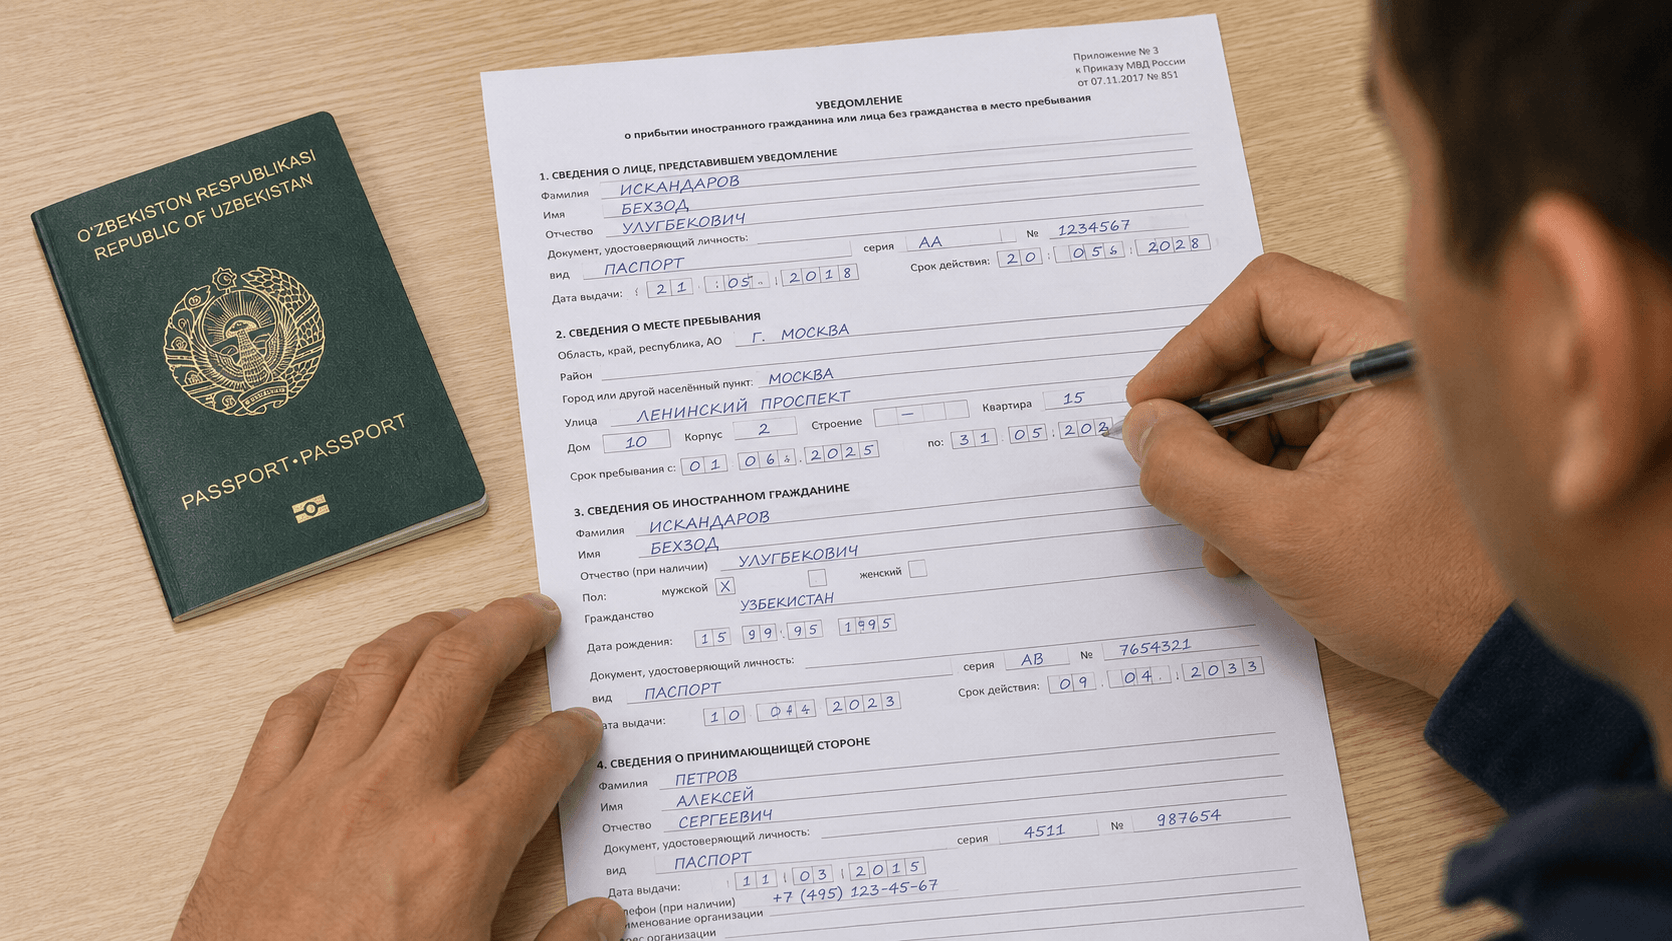 O'ZBEKISTON RESPUBLIKASI
REPUBLIC OF UZBEKISTAN
PASSPORT•PASSPORT
Приложение № 3
к Приказу МВД России
от 07.11.2017 № 851
УВЕДОМЛЕНИЕ
о прибытии иностранного гражданина или лица без гражданства в место пребывания
1. СВЕДЕНИЯ О ЛИЦЕ, ПРЕДСТАВИВШЕМ УВЕДОМЛЕНИЕ
Фамилия ИСКАНДАРОВ
Имя БЕХЗОД
Отчество УЛУГБЕКОВИЧ
Документ, удостоверяющий личность: серия АА № 1234567
вид ПАСПОРТ Срок действия: 20 05 2028
Дата выдачи: 21 05 2018
2. СВЕДЕНИЯ О МЕСТЕ ПРЕБЫВАНИЯ
Область, край, республика, АО г. МОСКВА
Район
Город или другой населённый пункт: МОСКВА
Улица ЛЕНИНСКИЙ ПРОСПЕКТ
Дом 10 Корпус 2 Строение — Квартира 15
Срок пребывания с: 01 06 2025 по: 31 05 202
3. СВЕДЕНИЯ ОБ ИНОСТРАННОМ ГРАЖДАНИНЕ
Фамилия ИСКАНДАРОВ
Имя БЕХЗОД
Отчество (при наличии) УЛУГБЕКОВИЧ
Пол: мужской X женский
Гражданство УЗБЕКИСТАН
Дата рождения: 15 99 95 1995
Документ, удостоверяющий личность: серия АВ № 7654321
вид ПАСПОРТ Срок действия: 09 04 2033
ата выдачи: 10 2023
4. СВЕДЕНИЯ О ПРИНИМАЮЩНИЩЕЙ СТОРОНЕ
Фамилия ПЕТРОВ
Имя АЛЕКСЕЙ
Отчество СЕРГЕЕВИЧ
Документ, удостоверяющий личность: серия 4511 № 987654
вид ПАСПОРТ
Дата выдачи: 11 03 2015
лефон (при наличии) +7 (495) 123-45-67
именование организации
организации